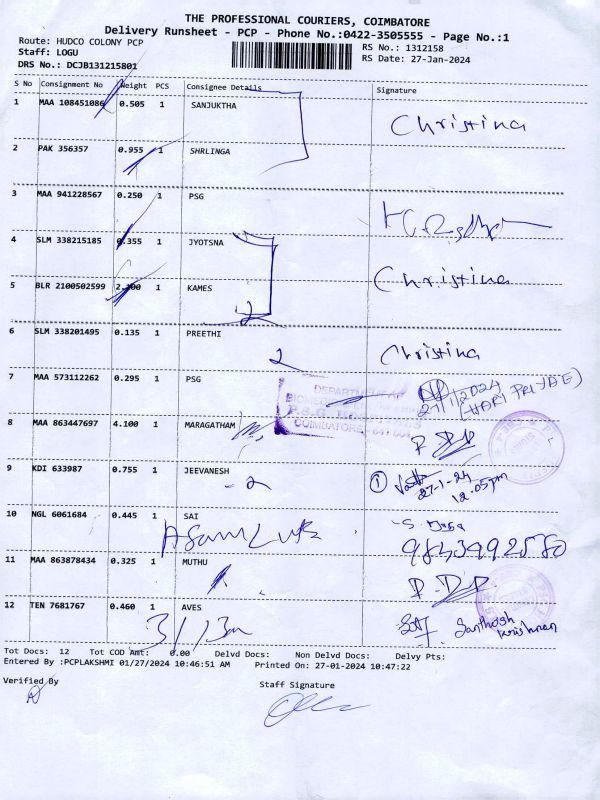 THE PROFESSIONAL COURIERS, COIMBATORE
Delivery Runsheet - PCP - Phone No.:0422-3505555 - Page No.:1
Route: HUDCO COLONY PCP
RS No.: 1312158
Staff: LOGU
RS Date: 27-Jan-2024
DRS No.: DCJB131215801
S No Consignment No Weight PCS Consignee Details Signature
1 MAA 108451086 0.505 1 SANJUKTHA
Christina
2 PAK 356357 0.955 1 SHRLINGA
3 MAA 941228567 0.250 1 PSG
4 SLM 338215185 0.355 1 JYOTSNA
Christina
5 BLR 2100502599 1 KAMES
2
6 SLM 338201495 0.135 1 PREETHI
2 Christina
7 MAA 573112262 0.295 1 PSG
27/1/2024
DEPARTMENT OF
COIMBATORE
8 MAA 863447697 4.100 1 MARAGATHAM
9 KDI 633987 0.755 1 JEEVANESH
-2
1 27-1-24
12.05pm
10 NGL 6061684 0.445 1 SAI
11 MAA 863878434 0.325 1 MUTHU
12 TEN 7681767 0.460 1 AVES
Santhosh
Krishnan
Tot Docs: 12 Tot COD Amt: 0.00 Delvd Docs: Non Delvd Docs: Delvy Pts:
Entered By :PCPLAKSHMI 01/27/2024 10:46:51 AM Printed On: 27-01-2024 10:47:22
Verified By Staff Signature